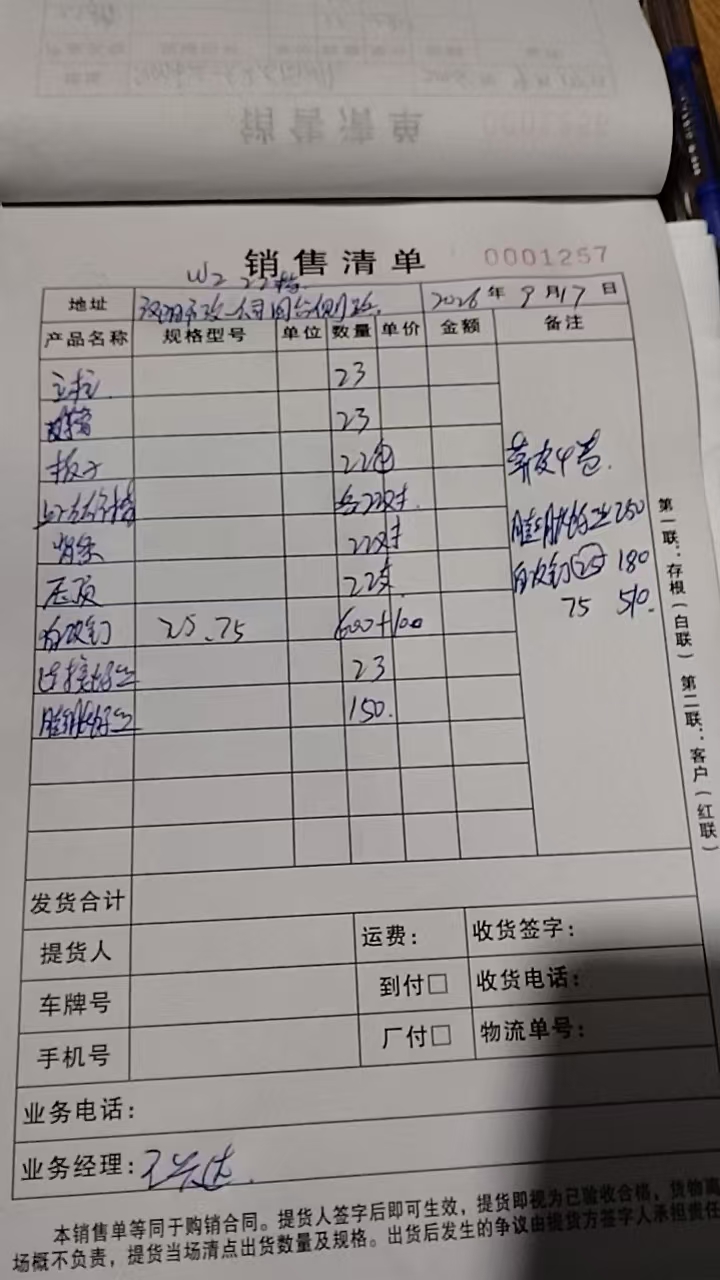 销售清单 0001257
W2 22档
地址 2026年9月17日
产品名称 规格型号 单位 数量 单价 金额 备注
立柱 23
23
板子 22包
草皮4卷.
各22对.
22对
膨胀螺丝250
压顶 22支
自攻钉(25) 180
75 510.
自攻钉 25、75 600+100
连接螺丝 23
膨胀螺丝 150.
第一联：存根（白联） 第二联：客户（红联）
发货合计
提货人 运费： 收货签字：
车牌号 到付□ 收货电话：
手机号 厂付□ 物流单号：
业务电话：
业务经理：
本销售单等同于购销合同。提货人签字后即可生效，提货即视为已验收合格，货物离
场概不负责，提货当场清点出货数量及规格。出货后发生的争议由提货方签字人承担责任